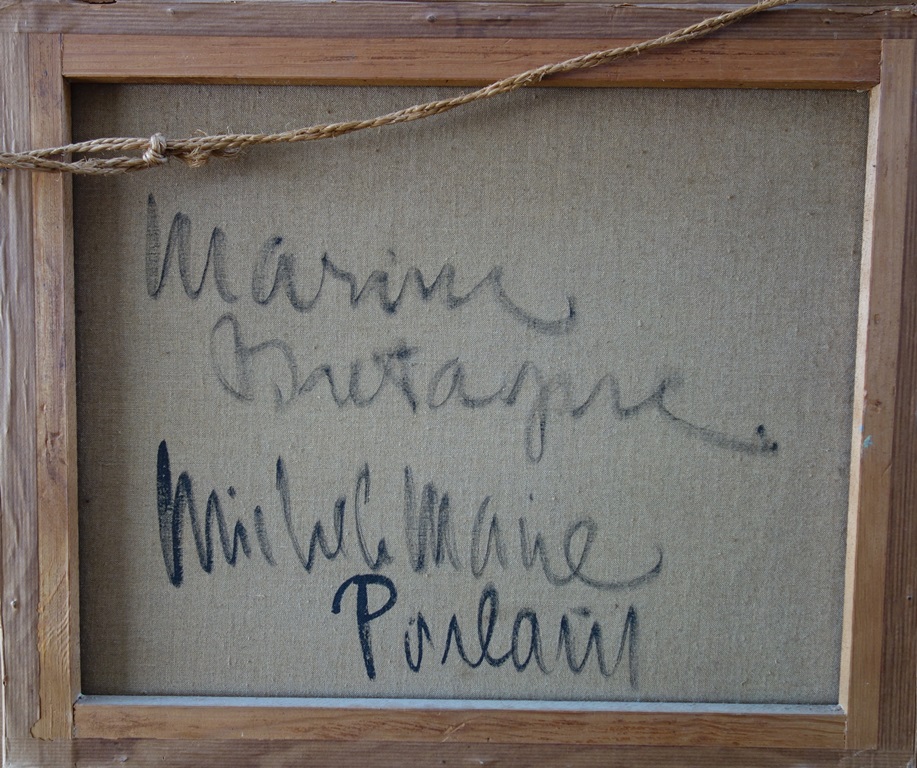 Marine
Bretagne
Michel Marie
Poulain